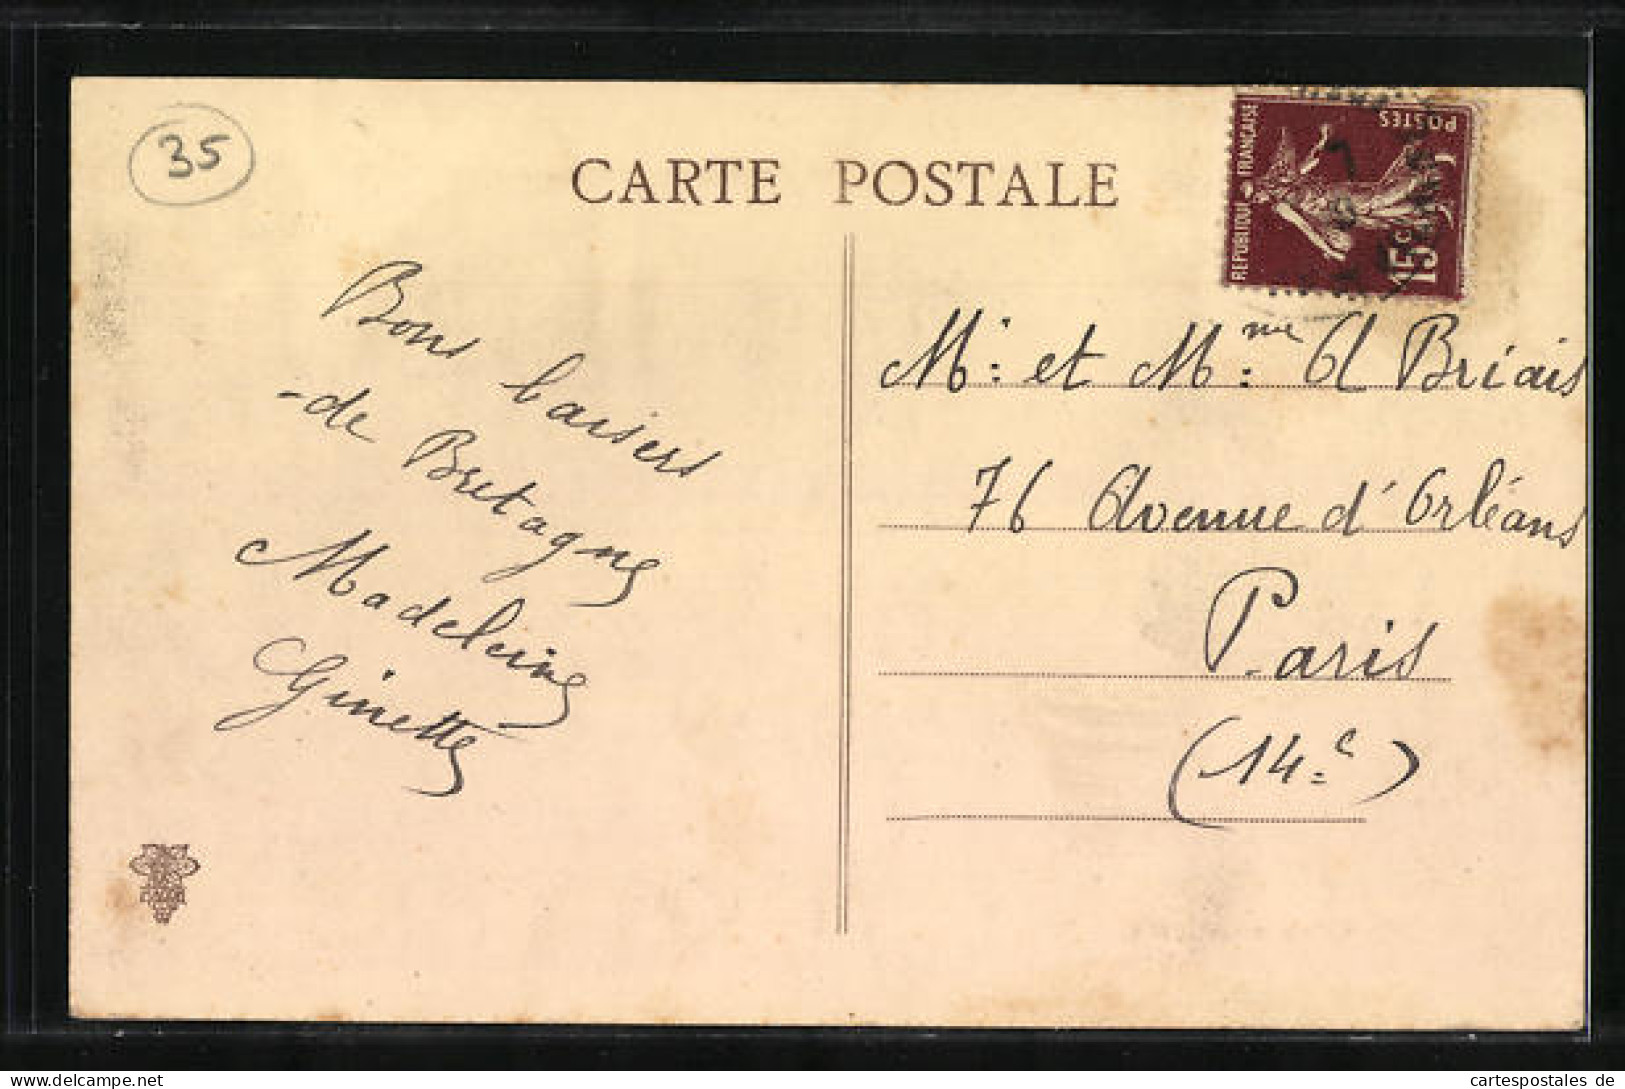 35
CARTE POSTALE
REPUBLIQUE FRANÇAISE
POSTES
15c
Bons baisers
-de Bretagne
Madeleine
Ginette
Mr: et Mme: A Briais
76 Avenue d'Orléans
Paris
(14=e)
cartespostales de